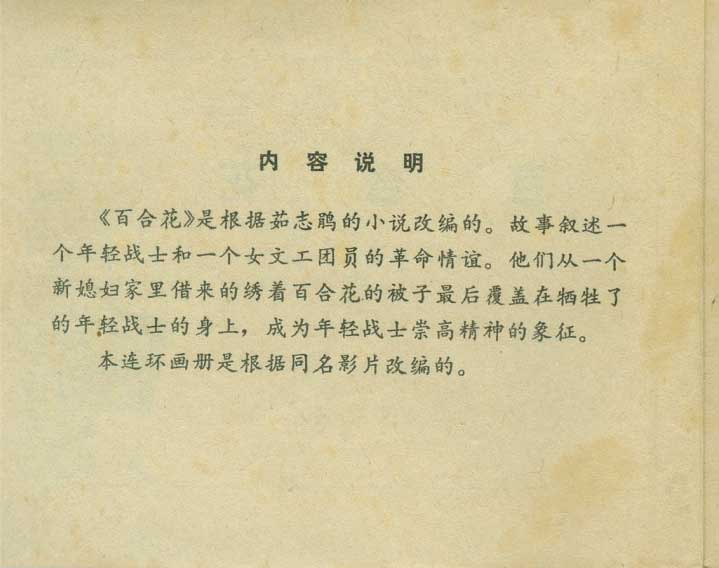 内容说明
《百合花》是根据茹志鹃的小说改编的。故事叙述一
个年轻战士和一个女文工团员的革命情谊。他们从一个
新媳妇家里借来的绣着百合花的被子最后覆盖在牺牲了
的年轻战士的身上，成为年轻战士崇高精神的象征。
本连环画册是根据同名影片改编的。